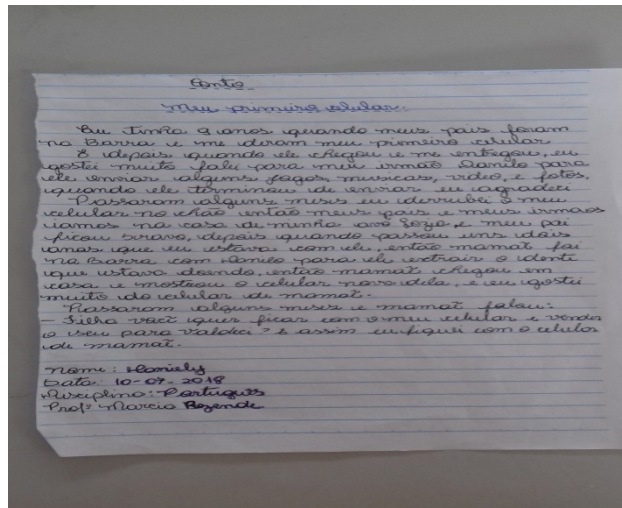 Conto
Meu primeiro celular.
Eu tinha 9 anos quando meus pais foram
na Barra e me deram meu primeiro celular
E depois quando ele chegou e me entregou, eu
gostei muito falei para meu irmão Danilo para
ele enviar alguns jogos, musicas, video, e fotos,
quando ele terminou de enviar eu agradeci
Passaram alguns meses eu derrubei o meu
celular no chão então meus pais e meus irmãos
vamos na casa de minha avó e meu pai
ficou bravo, depois quando passou uns dois
anos que eu estava com ele, então mamãe foi
na Barra com Danilo para ele extrair o dente
que estava doendo, então mamãe chegou em
casa e mostrou o celular novo dela, e eu gostei
muito do celular de mamãe.
Passaram alguns meses e mamãe falou:
- Filha você quer ficar com o meu celular e vender
o seu para Valdeci? E assim eu fiquei com o celular
de mamãe.
Nome: Daniely
Data: 10-07-2018
Disciplina: Português
Profª Marcia Rezende